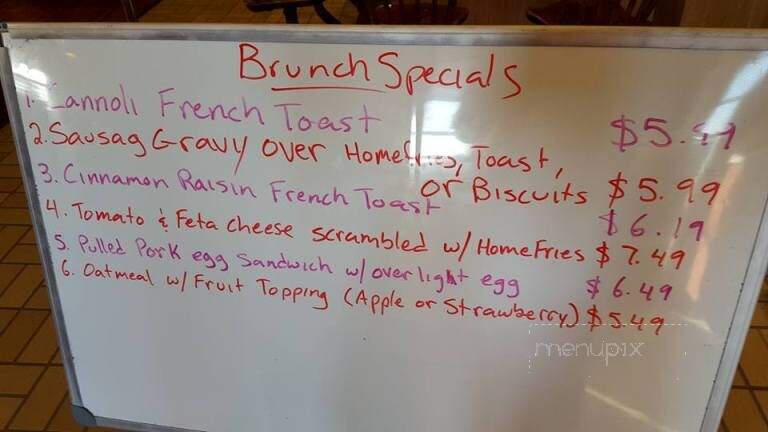 Brunch Specials
1. Cannoli French Toast $5.99
2. Sausag Gravy over Homefries, Toast,
or Biscuits $5.99
3. Cinnamon Raisin French Toast $6.19
4. Tomato & Feta cheese scrambled w/ HomeFries $7.49
5. Pulled Pork egg Sandwich w/ over light egg $6.49
6. Oatmeal w/ Fruit Topping (Apple or Strawberry) $5.49
menupix